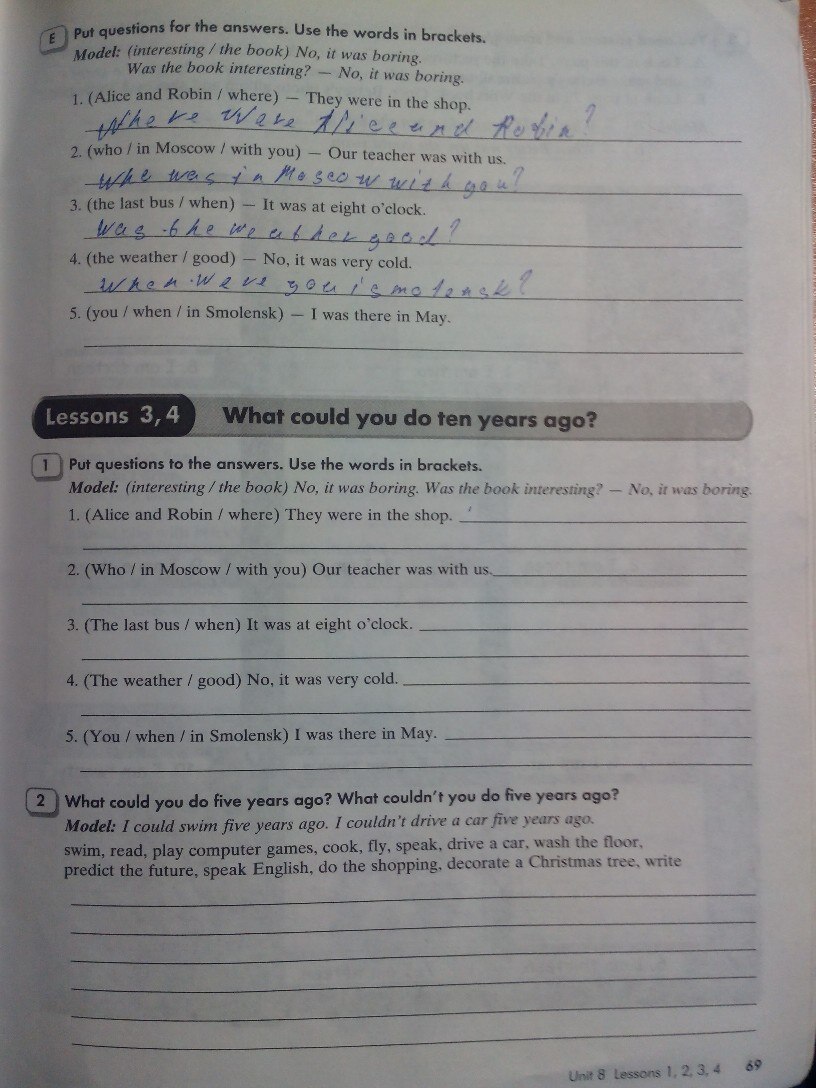 E Put questions for the answers. Use the words in brackets.
Model: (interesting / the book) No, it was boring.
Was the book interesting? — No, it was boring.
1. (Alice and Robin / where) — They were in the shop.
Where Were Alice and Robin?
2. (who / in Moscow / with you) — Our teacher was with us.
Who was in Moscow with you?
3. (the last bus / when) — It was at eight o'clock.
Was the weather good?
4. (the weather / good) — No, it was very cold.
When were you ismolensk?
5. (you / when / in Smolensk) — I was there in May.
Lessons 3, 4 What could you do ten years ago?
1 Put questions to the answers. Use the words in brackets.
Model: (interesting / the book) No, it was boring. Was the book interesting? — No, it was boring.
1. (Alice and Robin / where) They were in the shop.
2. (Who / in Moscow / with you) Our teacher was with us.
3. (The last bus / when) It was at eight o'clock.
4. (The weather / good) No, it was very cold.
5. (You / when / in Smolensk) I was there in May.
2 What could you do five years ago? What couldn't you do five years ago?
Model: I could swim five years ago. I couldn't drive a car five years ago.
swim, read, play computer games, cook, fly, speak, drive a car, wash the floor,
predict the future, speak English, do the shopping, decorate a Christmas tree, write
Unit 8 Lessons 1, 2, 3, 4 69